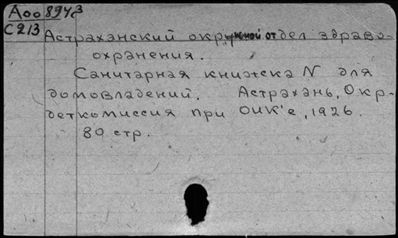 Аоо 8948
С 213
Астраханский окружной отдел здраво-
охранения.
Санитарная книжка N для
домовладений. Астрахань, Окр-
деткомиссия при ОИК'е, 1926.
80 стр.